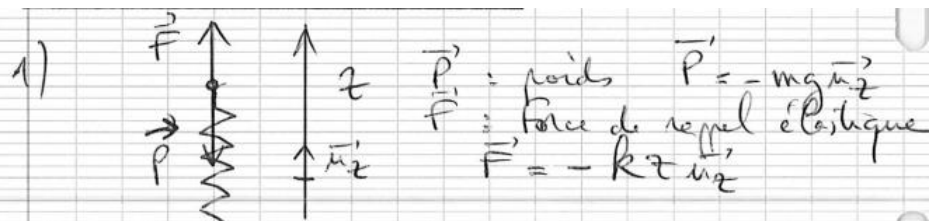 1) F⃗ z P⃗ : poids P⃗ = - mg u⃗z
F⃗ : Force de rappel élastique
P⃗ u⃗z F⃗ = - kz u⃗z